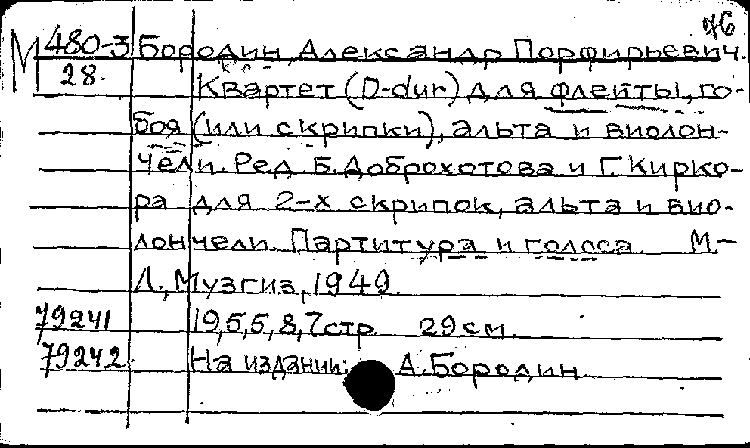 76
М 480-3 Бородин, Александр Порфирьевич.
28. Квартет (D-dur) для флейты, го-
боя (или скрипки), альта и виолон-
чели. Ред. Б. Доброхотова и Г. Кирко-
ра для 2-х скрипок, альта и вио-
лончели. Партитура и голоса. М.-
Л., Музгиз, 1949.
79241 19,5,5,8,7 стр. 29 см.
79242 На издании: А. Бородин